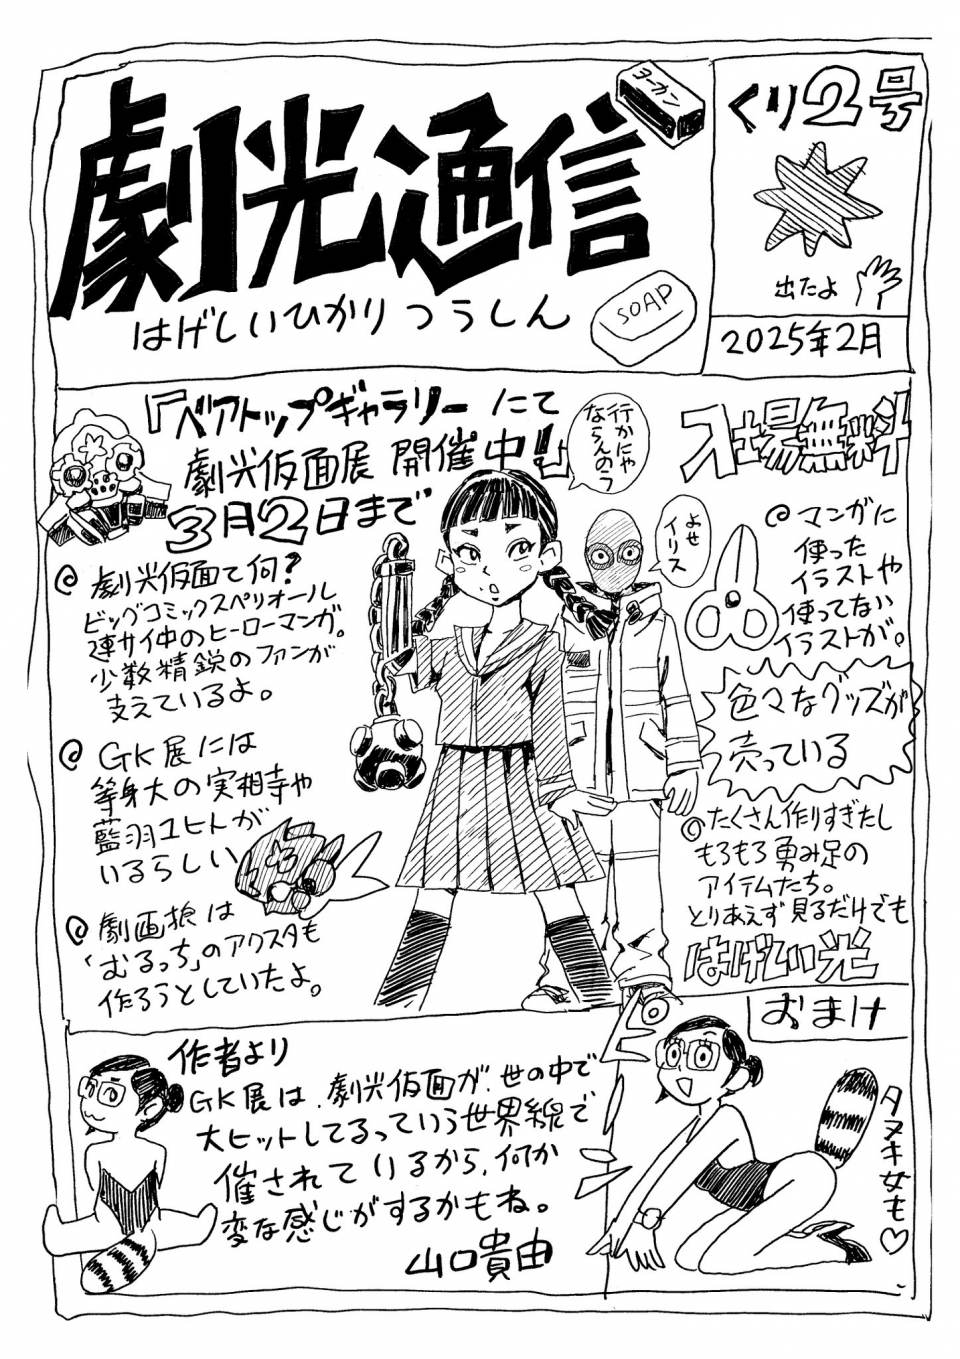 劇光通信
はげしいひかりつうしん
ヨーカン
SOAP
くり2号
出たよ
2025年2月
「ベアトップギャラリーにて
劇光仮面展 開催中!!」
3月2日まで
入場無料
行かにゃ
ならんの?
よせ
イリス
劇光仮面て何?
ビッグコミックスペリオール
連サイ中のヒーローマンガ。
少数精鋭のファンが
支えているよ。
GK展には
等身大の実相寺や
藍羽ユヒトが
いるらしい
劇画狼は
「むるっち」のアクスタも
作ろうとしていたよ。
マンガに
使った
イラストや
使ってない
イラストが。
色々なグッズが
売っている
たくさん作りすぎたし
もろもろ勇み足の
アイテムたち。
とりあえず見るだけでも
はげしい光
作者より
GK展は、劇光仮面が、世の中で
大ヒットしてるっていう世界線で
催されているから、何か
変な感じがするかもね。
山口貴由
おまけ
タヌキ女も♡